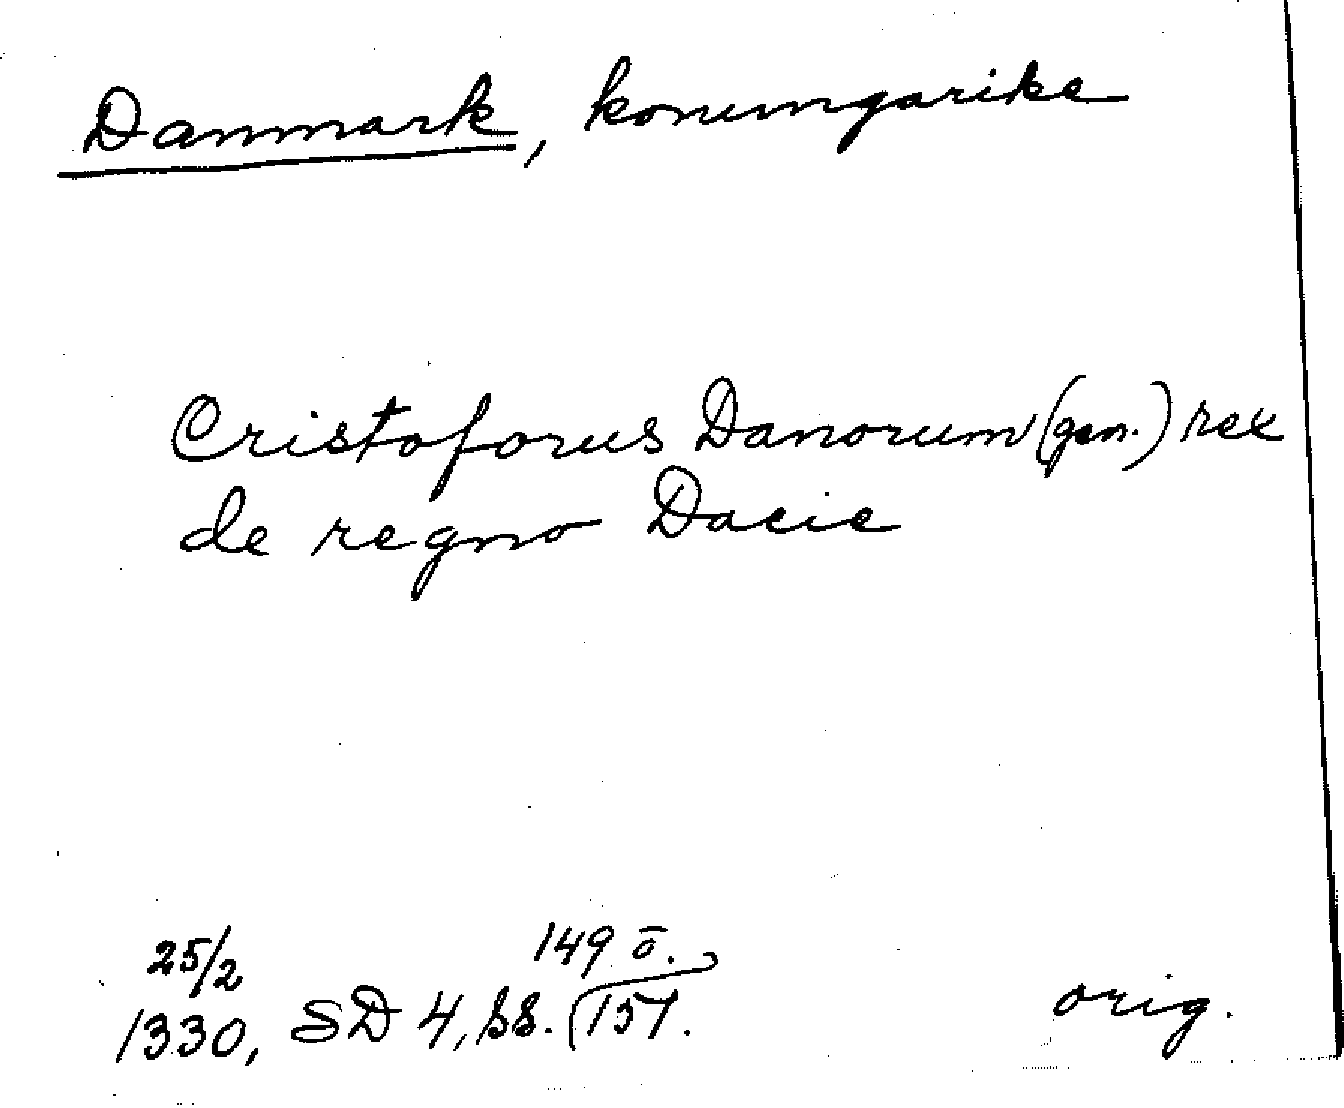 Danmark, konungarike
Cristoforus Danorum (gen.) rex
de regno Dacie
25/2 149 ö.
1330, SD 4, ss. 157.
orig.